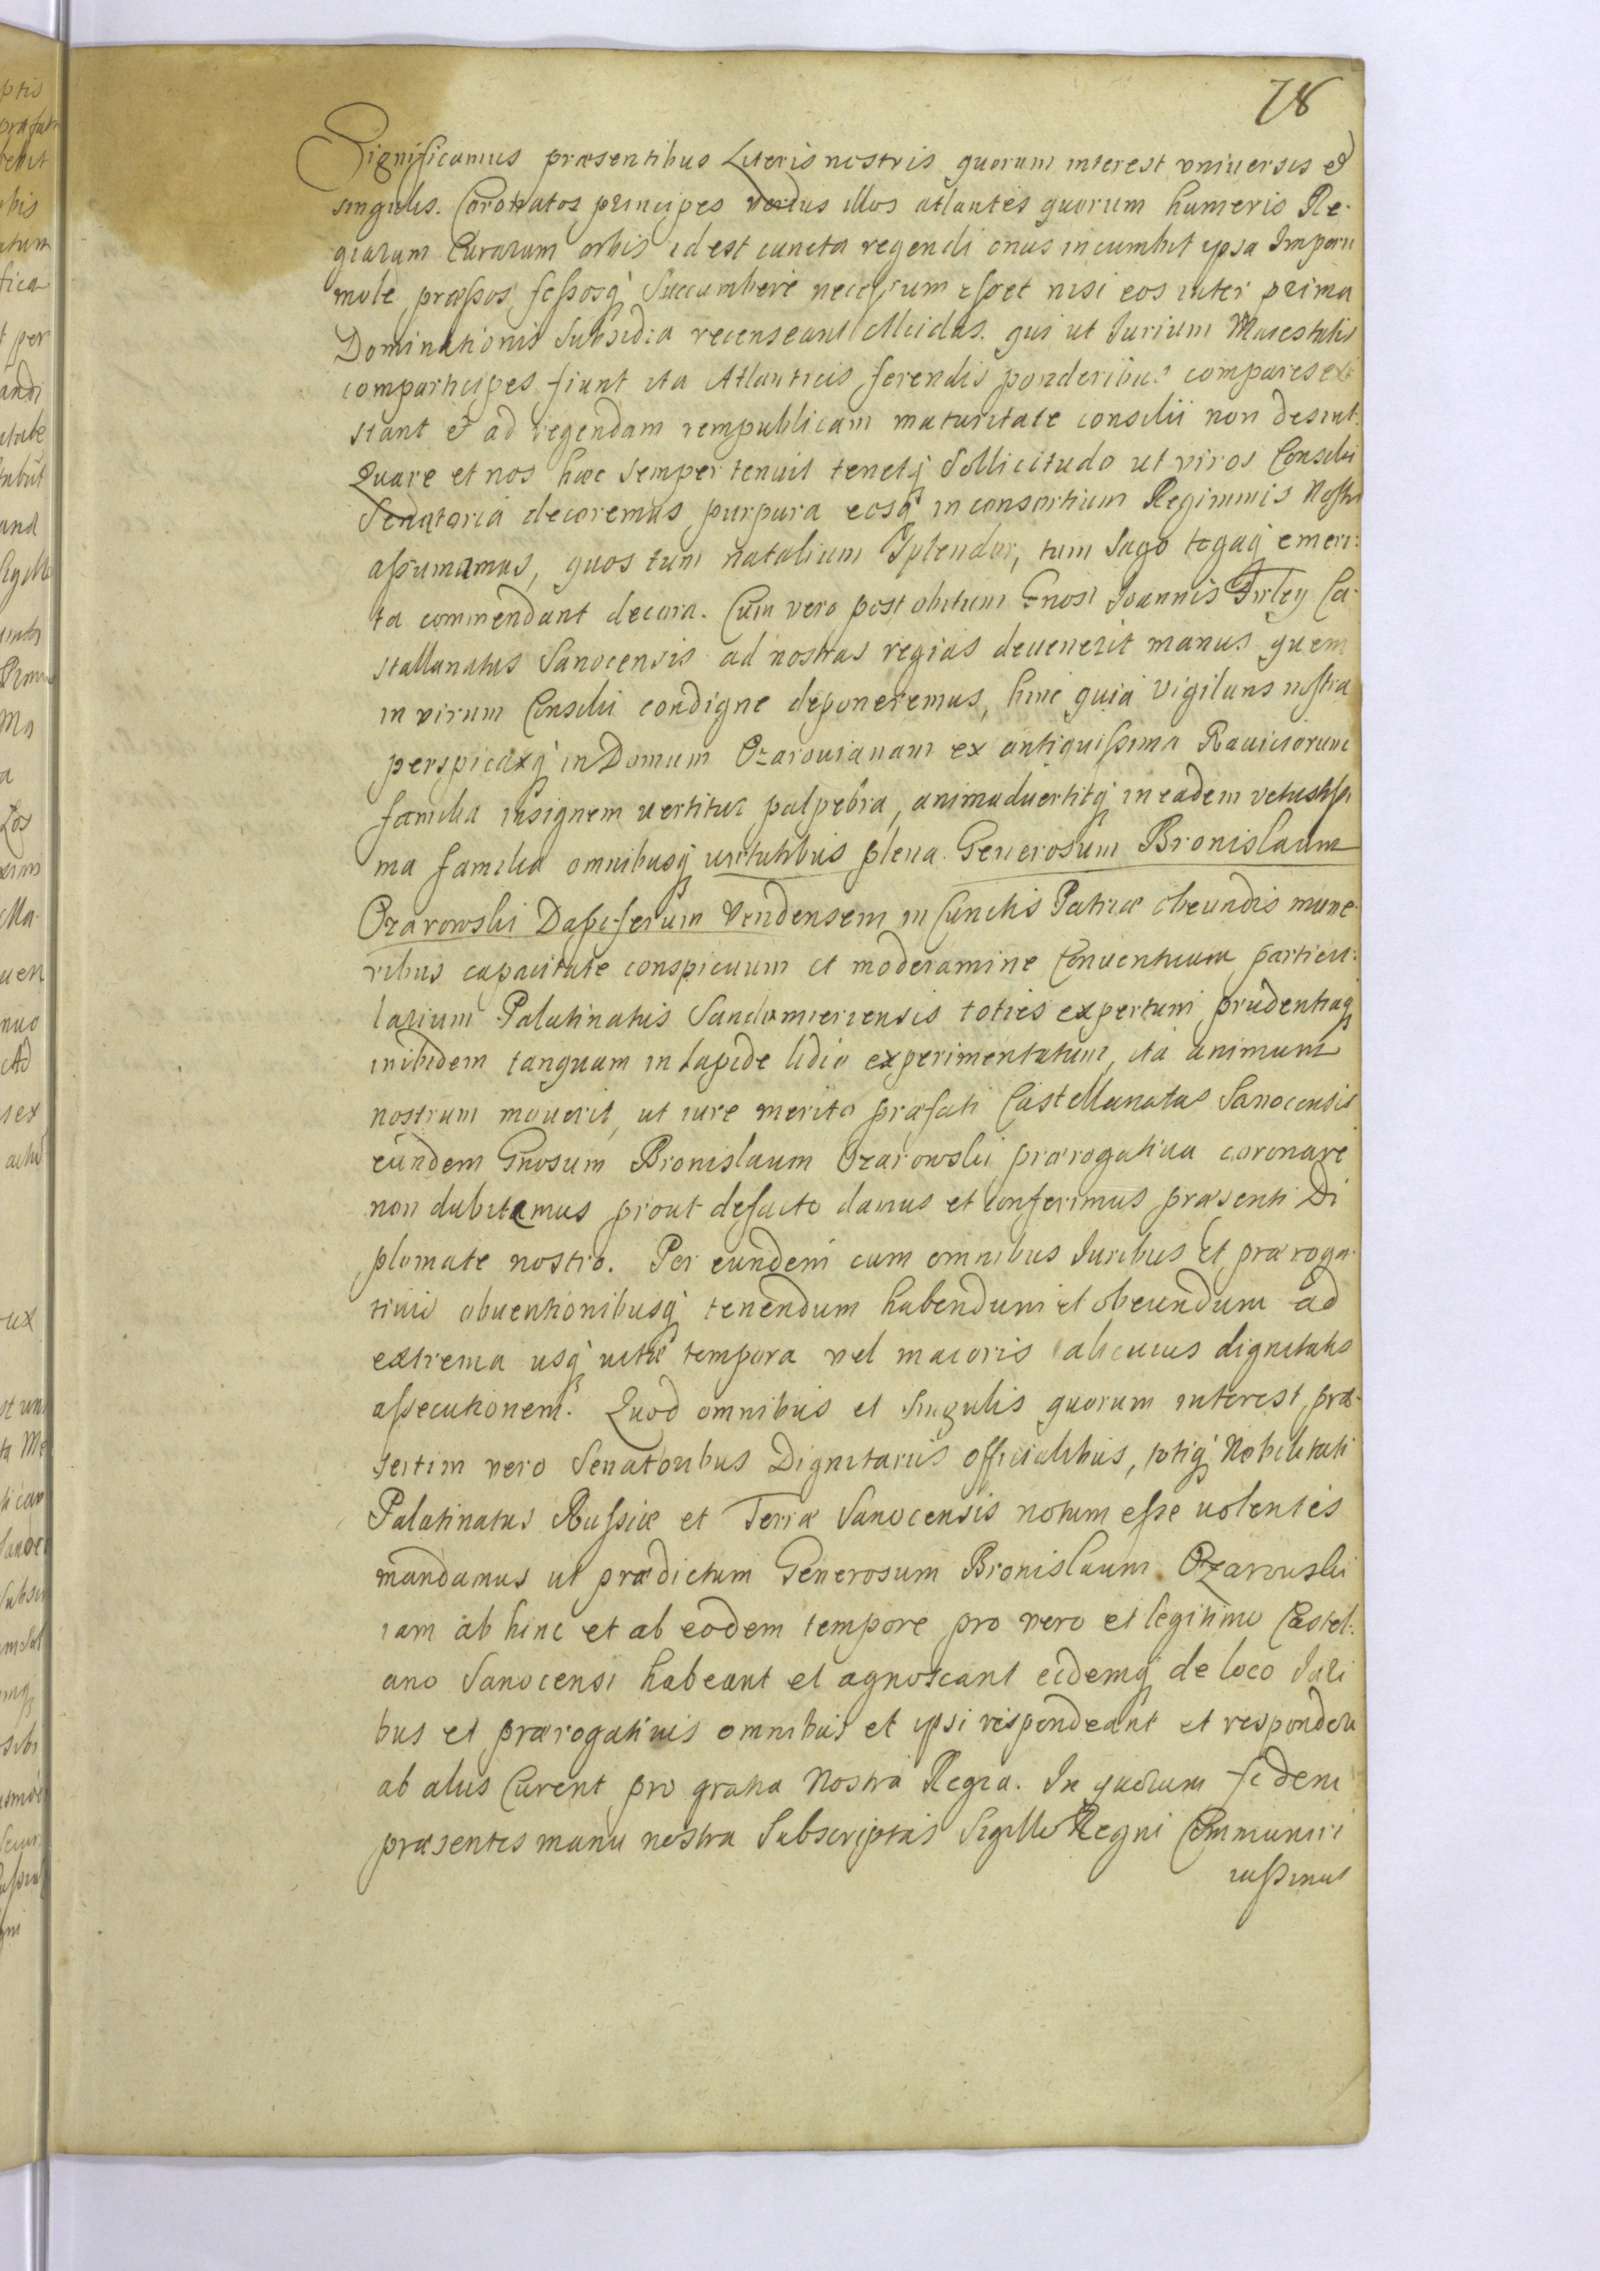 78
Significamus præsentibus Literis nostris quorum interest vniuersis et
singulis. Coronatos principes verius illos atlantes quorum humeris Re-
giarum Curarum orbis id est cuncta regendi onus incumbit ipsa Imperii
mole pressos fessosq̃ Succumbere necessum esset nisi eos inter prima
Dominationis Subsidia recenseant Alcidas. qui ut Iurium Maiestatis
comparticipes fiunt ita Atlanticis ferendis ponderibus compares exi
stant et ad regendam rempublicam maturitate consilii non desint.
Quare et nos hæc semper tenuit tenetq̃ Sollicitudo ut viros Consilii
Senatoria decoremus purpura eosq̃ in consortium Regiminis Nostri
assumamus, quos tum natalium Splendor, tum Sago togaq̃ emeri:
ta commendant decora. Cum vero post obitum Gnosi Ioannis Firley Ca-
stallanatus Sanocensis ad nostras regias deuenerit manus quem
in virum Consilii condigne deponeremus, hinc quia vigilans nostra
perspicaxq̃ in Domum Ozarouianam ex antiquissima Rauiciorum
familia insignem vertitur palpebra, animaduertitq̃ in eadem vetustissi
ma familia omnibusq̃ uirtutibus plena Generosum Bronislaum
Ozarowski Dapiferum Vendensem in Cunctis Patriæ obeundis mune-
ribus capacitate conspicuum et moderamine Conuentuum particu:
larium Palatinatus Sandomiriensis toties expertum prudentiaq̃
inibidem tanquam in lapide lidio experimentatum, ita animum
nostrum mouerit, ut iure merito præfati Castellanatus Sanocensis
eundem Gnosum Bronislaum Ozarowski prærogatiua coronare
non dubitamus prout defacto damus et conferimus præsenti Di
plomate nostro. Per eundem cum omnibus Iuribus et præroga-
tiuis obuentionibusq̃ tenendum habendum et obeundum ad
extrema usq̃ uitæ tempora vel maioris alicuius dignitatis
assecutionem. Quod omnibus et singulis quorum interest, præ-
sertim vero Senatoribus Dignitariis officialibus, totiq̃ Nobilitati
Palatinatus Russiæ et Terræ Sanocensis notum esse uolentes
mandamus ut prædictum Generosum Bronislaum Ozarouski
iam ab hinc et ab eodem tempore pro vero et legitimo Castel:
ano Sanocensi habeant et agnoscant eidemq̃ de loco Iuri
bus et prærogatiuis omnibus et ipsi respondeant et responderi
ab aliis Curent pro gratia Nostra Regia. In quorum fidem
præsentes manu nostra Subscriptas Sigillo Regni Communiri
iussimus